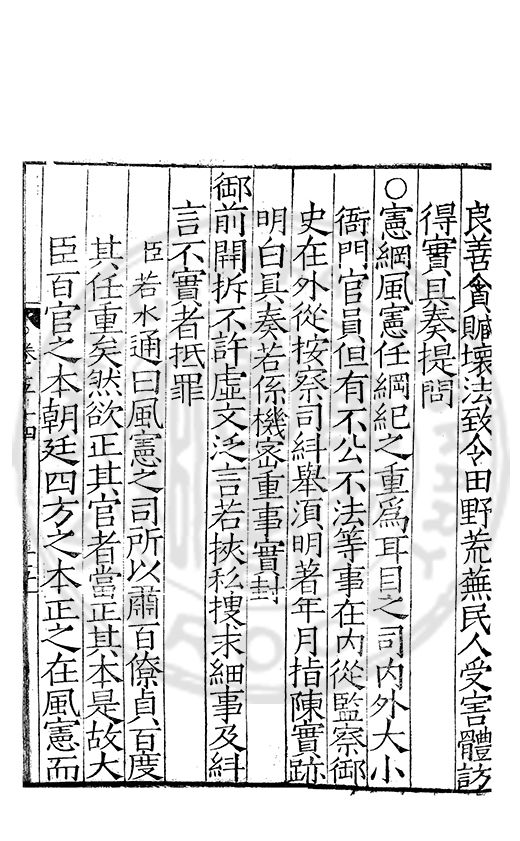 良善貪贓壞法致令田野荒蕪民人受害體訪
得實具奏提問
○憲綱風憲任綱紀之重爲耳目之司內外大小
衙門官員但有不公不法等事在內從監察御
史在外從按察司糾舉湏明著年月指陳實跡
明白具奏若係機密重事實封
御前開拆不許虛文泛言若挾私搜求細事及糾
言不實者抵罪
臣若水通曰風憲之司所以肅百僚貞百度
其任重矣然欲正其官者當正其本是故大
臣百官之本朝廷四方之本正之在風憲而